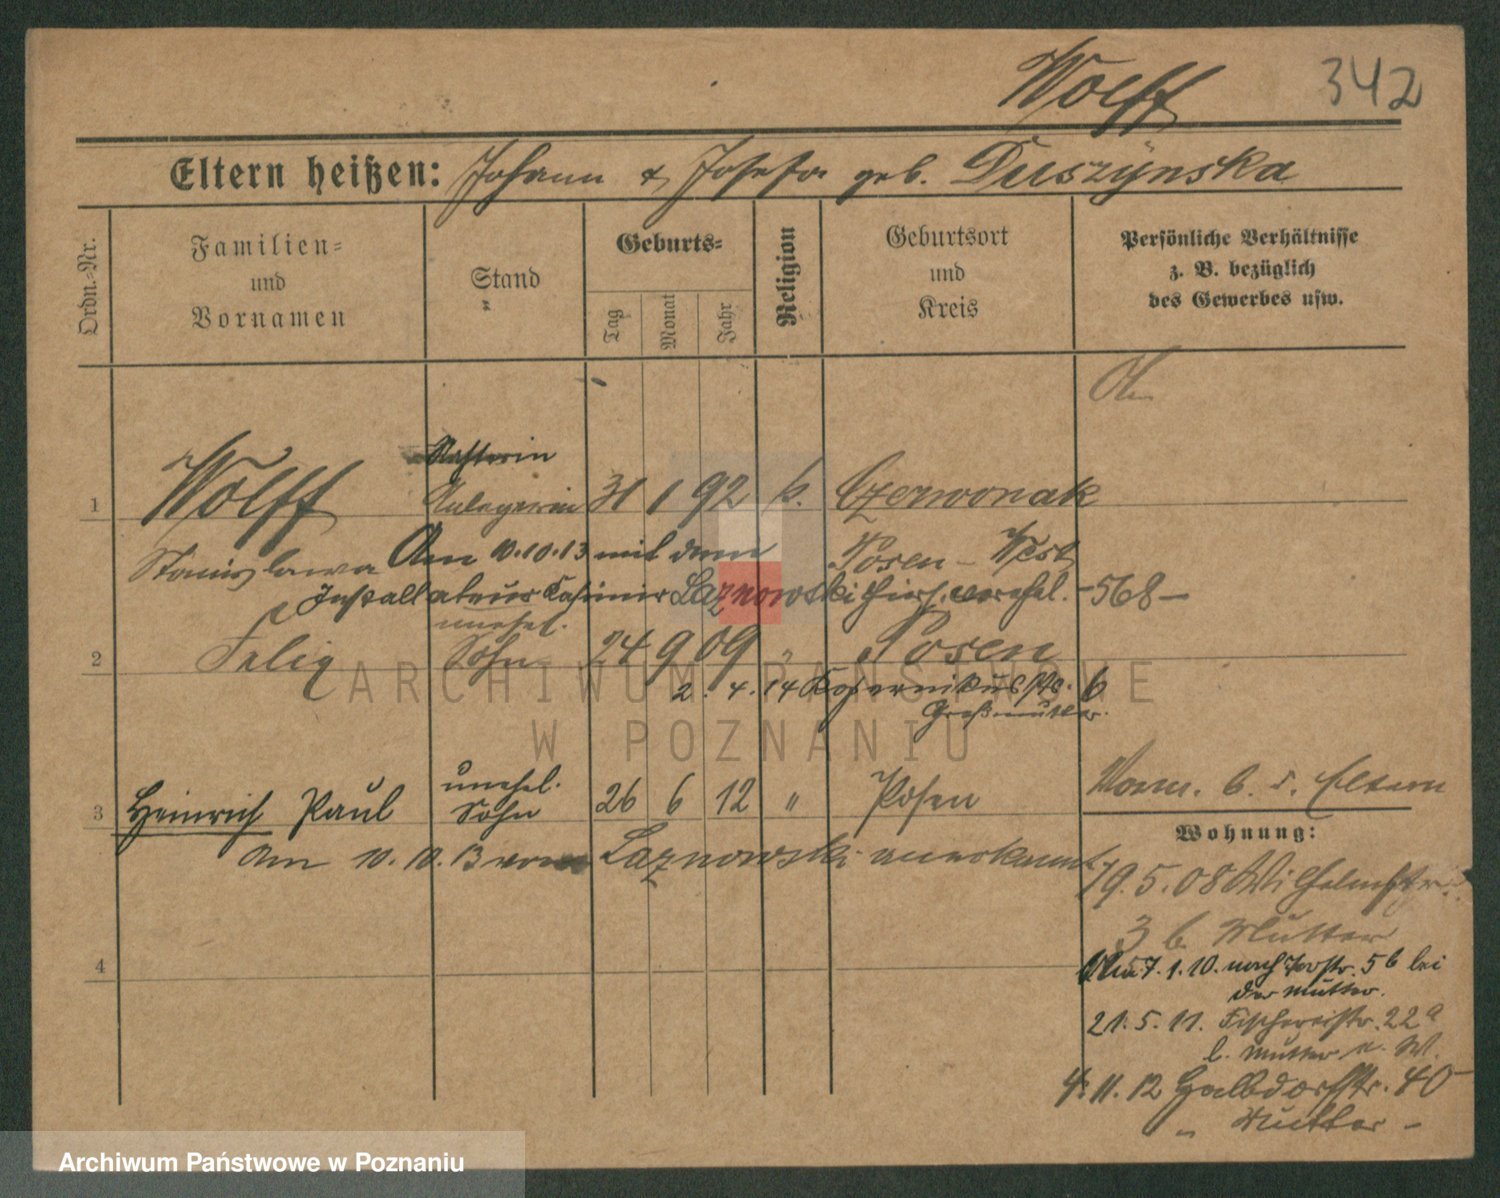 Wolff 342
Eltern heißen: Johann & Josefa geb. Duszynska
Ordn.-Nr.
Familien-
und
Vornamen
Stand
"
Geburts-
Tag
Monat
Jahr
Religion
Geburtsort
und
Kreis
Persönliche Verhältnisse
z. B. bezüglich
des Gewerbes usw.
1 Wolff Anlegerin 31 1 92 k. Czerwonak
Stanislawa Am 10.10.13 mit dem Posen - West
Installateur Kasimir Laznowski hier verehel. - 568 -
unehel.
2 Felix Sohn 24 9 09 " Posen
2. 4. 14 Kopernikusstr. 6
Großmutter.
unehel.
3 Heinrich Paul Sohn 26 6 12 " Posen
Am 10. 10. 13 vom Laznowski anerkannt
b. d. Eltern
Wohnung:
19. 5. 08 Wilhelmstr.
3 b. Mutter
4
7. 1. 10. nach 56 bei
der Mutter.
21. 5. 11. Fischereistr. 22a
b. Mutter
4. 11. 12 Halbdorfstr. 40
- Mutter -
ARCHIWUM PAŃSTWOWE
W POZNANIU
Archiwum Państwowe w Poznaniu